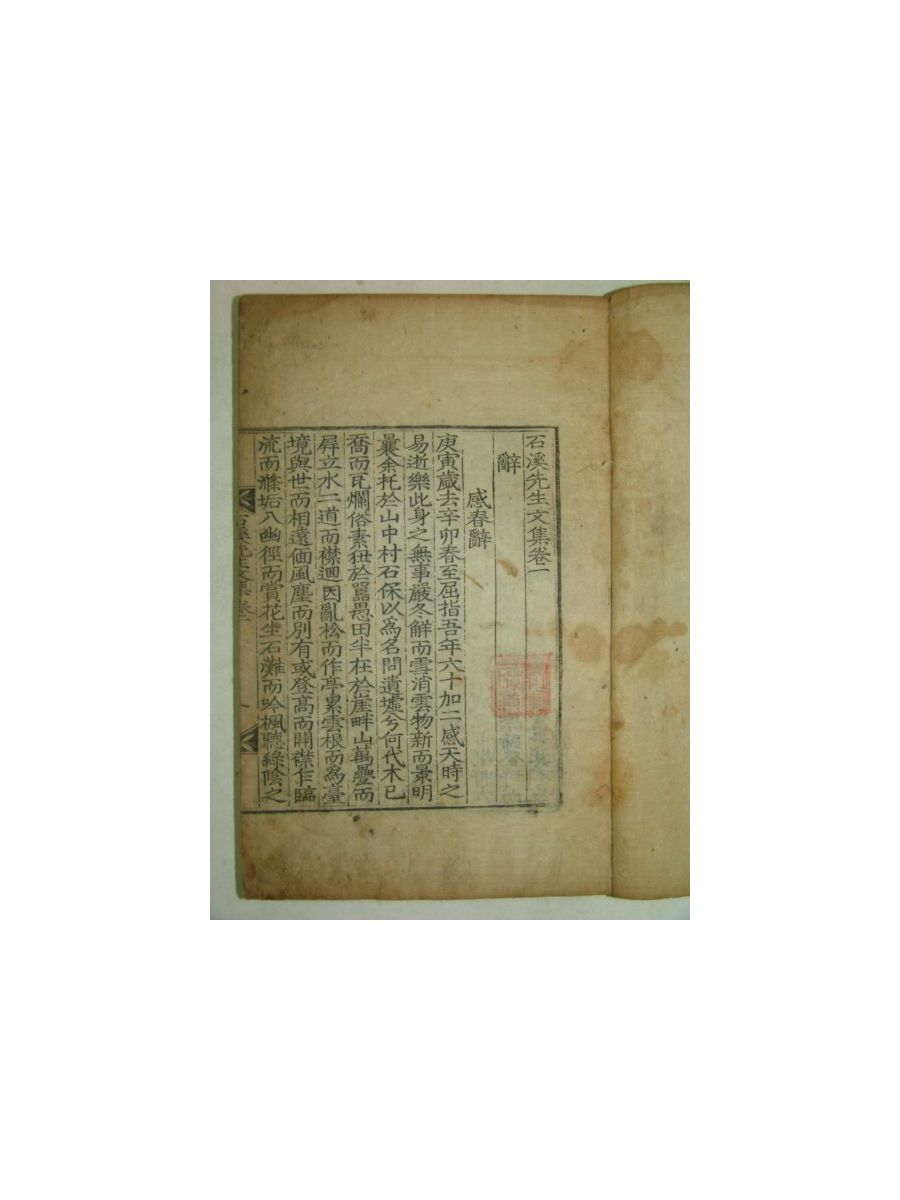 石溪先生文集卷一
辭
感春辭
庚寅歲去辛卯春至屈指吾年六十加二感天時之
易逝樂此身之無事嚴冬解而雪消雲物新而景明
曩余托於山中村石保以為名問遺墟兮何代木已
喬而瓦爛俗素狃於嚚愚田半在於崖畔山萬疊而
屛立水二道而襟迴因亂松而作亭累雲根而為臺
境與世而相遠偭風塵而別有或登高而開襟乍臨
流而滌垢入幽徑而賞花坐石灘而吟楓聽綠陰之
石溪先生文集 卷一